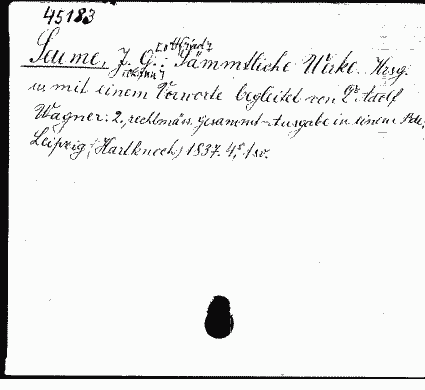 45183
Seume, J. G.: Sämmtliche Werke. Hrsg.
u. mit einem Vorworte begleitet von Dr Adolf
Wagner. 2., rechtmäss. Gesammt-Ausgabe in einem Bde.
Leipzig, (Hartknoch) 1837. 4°.